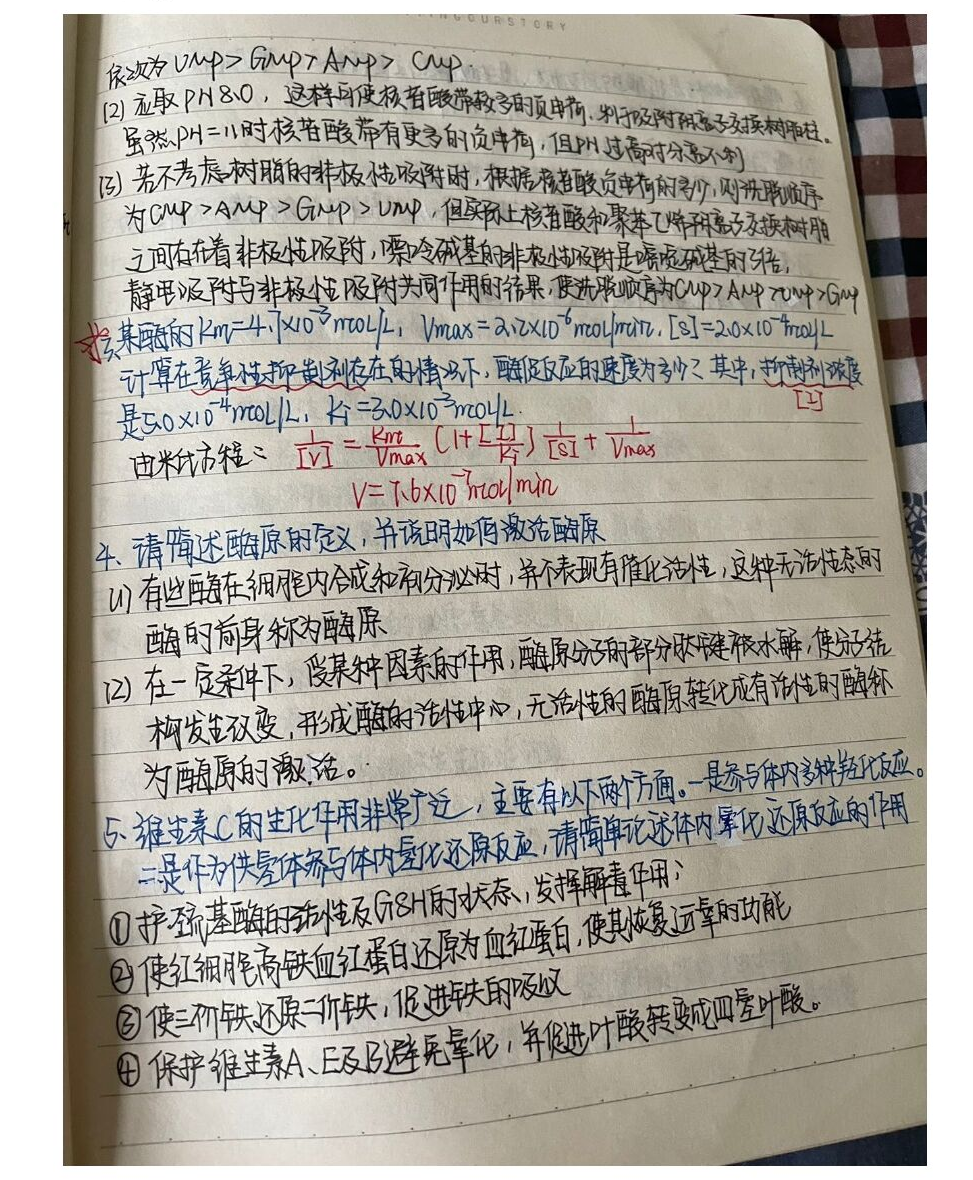 依次为 UMP > GMP > AMP > CMP.
(2) 应取 PH 8.0，这样可使核苷酸带较多的负电荷，利于吸附阴离子交换树脂柱。
虽然PH=11时核苷酸带有更多的负电荷，但PH过高对分离不利
(3) 若不考虑树脂的非极性吸附时，根据核苷酸负电荷的多少，则洗脱顺序
为CMP > AMP > GMP > UMP，但实际上核苷酸和聚苯乙烯阴离子交换树脂
之间存在着非极性吸附，嘌呤碱基的非极性吸附是嘧啶碱基的3倍，
静电吸附与非极性吸附共同作用的结果，使洗脱顺序为CMP>AMP>UMP>GMP
某酶的Km=4.7×10⁻³mol/L，Vmax=2.2×10⁻⁶mol/min，[S]=2.0×10⁻⁴mol/L
计算在竞争性抑制剂存在的情况下，酶促反应的速度为多少？其中，抑制剂浓度
[I]
是5.0×10⁻⁴mol/L，Ki=3.0×10⁻³mol/L.
由米氏方程： 1/[V] = Km/Vmax (1+[I]/Ki) 1/[S] + 1/Vmax
V=7.6×10⁻⁷mol/min
4. 请简述酶原的定义，并说明如何激活酶原
(1) 有些酶在细胞内合成和初分泌时，并不表现有催化活性，这种无活性态的
酶的前身称为酶原
(2) 在一定条件下，受某种因素的作用，酶原分子的部分肽键被水解，使分子结
构发生改变，形成酶的活性中心，无活性的酶原转化成有活性的酶称
为酶原的激活。
5. 维生素C的生化作用非常广泛，主要有以下两个方面。一是参与体内多种羟化反应。
二是作为供氢体参与体内氧化还原反应，请简单论述体内氧化还原反应的作用
① 护巯基酶的活性及GSH的状态，发挥解毒作用；
② 使红细胞高铁血红蛋白还原为血红蛋白，使其恢复运氧的功能
③ 使三价铁还原二价铁，促进铁的吸收
④ 保护维生素A、E及B避免氧化，并促进叶酸转变成四氢叶酸。